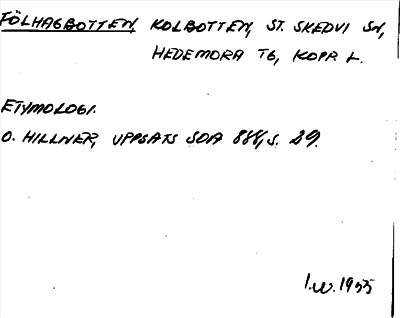 FÖLHAGBOTTEN, KOLBOTTEN, ST. SKEDVI SN,
HEDEMORA TG, KOPP L.
ETYMOLOGI.
O. HILLNER, UPPSATS SOA 888, S. 29.
I.W. 1955